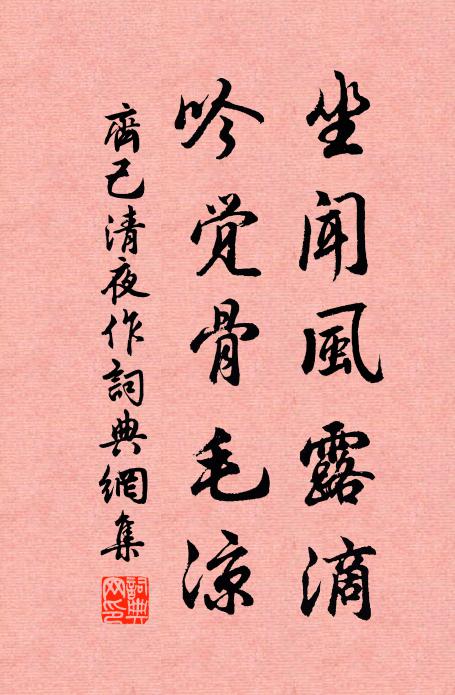 坐闻風露滴
吟觉骨毛凉
齊己清夜作詞典網集
詞典網印